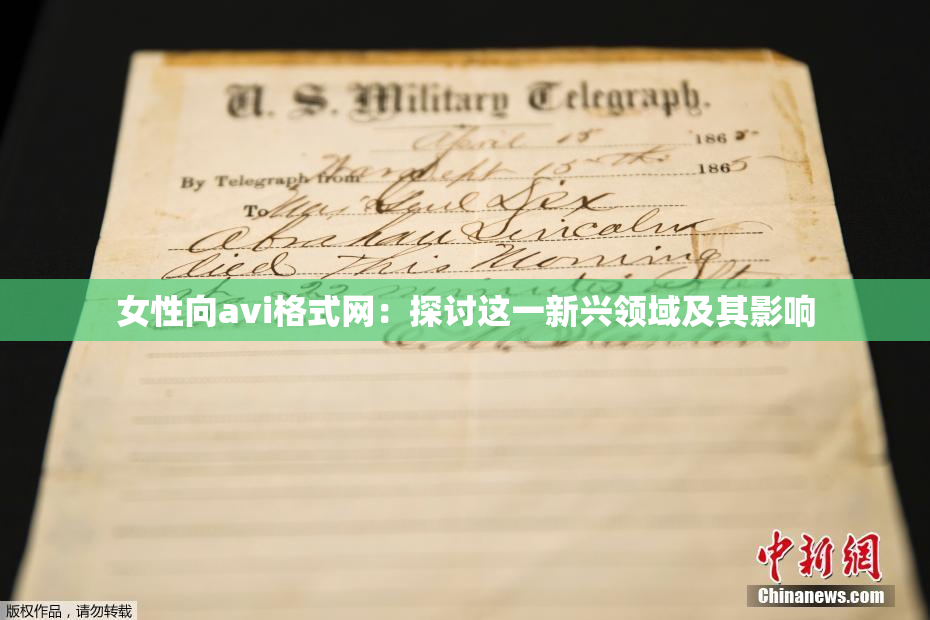 U. S. Military Telegraph.
April 15 1865
By Telegraph from War Dept 15th 1865
To Maj Genl Dix
Abraham Lincoln
died This Morning
at 22 minutes after
女性向avi格式网：探讨这一新兴领域及其影响
E. M. Stanton
中新网
Chinanews.com
版权作品，请勿转载